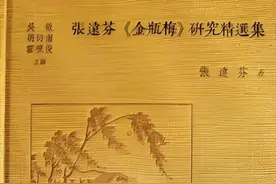 吳　敢
胡衍南
霍現俊
主編
張遠芬《金瓶梅》研究精選集
張遠芬　著